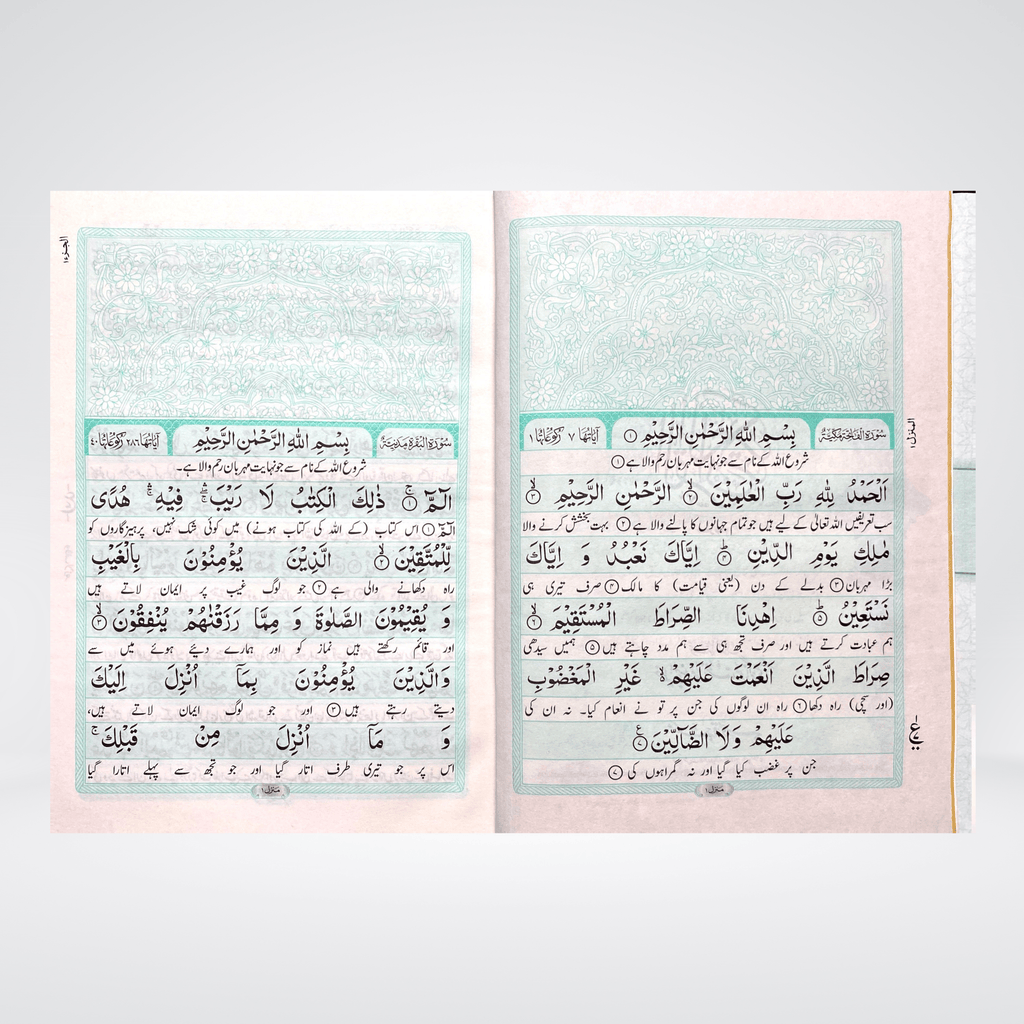 المنزل ۱
سُوْرَةُ الْفَاتِحَةِ مَكِّيَّةٌ بِسْمِ اللّٰهِ الرَّحْمٰنِ الرَّحِيْمِ ۱ اٰيَاتُهَا ۷ رُكُوْعَاتُهَا ۱
شروع اللہ کے نام سے جو نہایت مہربان رحم والا ہے ۱
اَلْحَمْدُ لِلّٰهِ رَبِّ الْعٰلَمِيْنَ ۙ۲ الرَّحْمٰنِ الرَّحِيْمِ ۙ۳
سب تعریفیں اللہ تعالیٰ کے لیے ہیں جو تمام جہانوں کا پالنے والا ہے ۲ بہت بخشش کرنے والا
مٰلِكِ يَوْمِ الدِّيْنِ ؕ۴ اِيَّاكَ نَعْبُدُ وَ اِيَّاكَ
بڑا مہربان ۳ بدلے کے دن (یعنی قیامت) کا مالک ۴ صرف تیری ہی
نَسْتَعِيْنُ ؕ۵ اِهْدِنَا الصِّرَاطَ الْمُسْتَقِيْمَ ۙ۶
ہم عبادت کرتے ہیں اور صرف تجھ ہی سے ہم مدد چاہتے ہیں ۵ ہمیں سیدھی
صِرَاطَ الَّذِيْنَ اَنْعَمْتَ عَلَيْهِمْ ۙ۬ غَيْرِ الْمَغْضُوْبِ
(اور سچی) راہ دکھا ۶ راہ ان لوگوں کی جن پر تو نے انعام کیا۔ نہ ان کی
عَلَيْهِمْ وَلَا الضَّآلِّيْنَ ۷
جن پر غضب کیا گیا اور نہ گمراہوں کی ۷
منزل ۱
الجزء ۱
سُوْرَةُ الْبَقَرَةِ مَدَنِيَّةٌ بِسْمِ اللّٰهِ الرَّحْمٰنِ الرَّحِيْمِ اٰيَاتُهَا ۲۸۶ رُكُوْعَاتُهَا ۴۰
شروع اللہ کے نام سے جو نہایت مہربان رحم والا ہے۔
الٓمّٓ ۚ۱ ذٰلِكَ الْكِتٰبُ لَا رَيْبَ ۛۖ فِيْهِ ۛۚ هُدًى
الٓمّٓ ۱ اس کتاب (کے اللہ کی کتاب ہونے) میں کوئی شک نہیں، پرہیزگاروں کو
لِّلْمُتَّقِيْنَ ۙ۲ الَّذِيْنَ يُؤْمِنُوْنَ بِالْغَيْبِ
راہ دکھانے والی ہے ۲ جو لوگ غیب پر ایمان لاتے ہیں
وَ يُقِيْمُوْنَ الصَّلٰوةَ وَ مِمَّا رَزَقْنٰهُمْ يُنْفِقُوْنَ ۙ۳
اور قائم رکھتے ہیں نماز کو اور ہمارے دیئے ہوئے میں سے
وَالَّذِيْنَ يُؤْمِنُوْنَ بِمَآ اُنْزِلَ اِلَيْكَ
دیتے رہتے ہیں ۳ اور جو لوگ ایمان لاتے ہیں،
وَ مَآ اُنْزِلَ مِنْ قَبْلِكَ ۚ
اس پر جو تیری طرف اتارا گیا اور جو تجھ سے پہلے اتارا گیا
منزل ۱